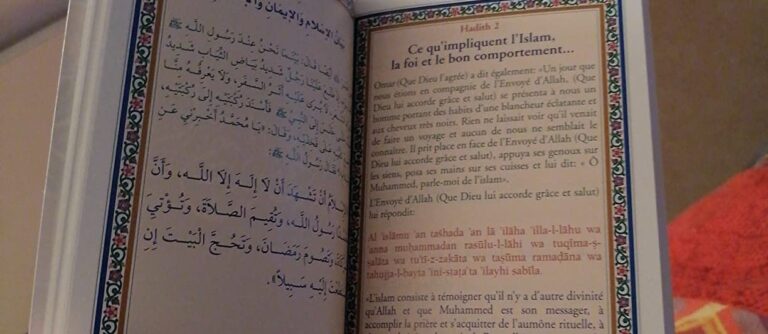 بيان الإسلام والإيمان والإ
أَيْضًا قَالَ: بَيْنَمَا نَحْنُ عِنْدَ رَسُولِ اللَّهِ ﷺ
طَلَعَ عَلَيْنَا رَجُلٌ شَدِيدُ بَيَاضِ الثِّيَابِ شَدِيدُ
لَا يُرَى عَلَيْهِ أَثَرُ السَّفَرِ، وَلَا يَعْرِفُهُ مِنَّا
جَلَسَ إِلَى النَّبِيِّ ﷺ فَأَسْنَدَ رُكْبَتَيْهِ إِلَى رُكْبَتَيْهِ،
عَلَى فَخِذَيْهِ، وَقَالَ: «يَا مُحَمَّدُ أَخْبِرْنِي عَنِ
فَقَالَ رَسُولُ اللَّهِ ﷺ:
الْإِسْلَامُ أَنْ تَشْهَدَ أَنْ لَا إِلَهَ إِلَّا اللَّه، وَأَنَّ
رَسُولُ اللَّه، وَتُقِيمَ الصَّلَاةَ، وَتُؤْتِيَ
وَتَصُومَ رَمَضَانَ، وَتَحُجَّ الْبَيْتَ إِنِ
إِلَيْهِ سَبِيلًا».
Hadith 2
Ce qu'impliquent l'Islam,
la foi et le bon comportement...
Omar (Que Dieu l'agrée) a dit également: «Un jour que
nous étions en compagnie de l'Envoyé d'Allah, (Que
Dieu lui accorde grâce et salut) se présenta à nous un
homme portant des habits d'une blancheur éclatante et
aux cheveux très noirs. Rien ne laissait voir qu'il venait
de faire un voyage et aucun de nous ne semblait le
connaître. Il prit place en face de l'Envoyé d'Allah (Que
Dieu lui accorde grâce et salut), appuya ses genoux sur
les siens, posa ses mains sur ses cuisses et lui dit: « Ô
Muhammed, parle-moi de l'islam».
L'Envoyé d'Allah (Que Dieu lui accorde grâce et salut)
lui répondit:
Al 'islāmu 'an tašhada 'an lā 'ilāha 'illa-l-lāhu wa
'anna muḥammadan rasūlu-l-lāhi wa tuqīma-ṣ-
ṣalāta wa tu'ti-z-zakāta wa taṣūma ramaḍāna wa
taḥuǧǧa-l-bayta 'ini-staṭa'ta 'ilayhi sabīla.
«L'islam consiste à témoigner qu'il n'y a d'autre divinité
qu'Allah et que Muhammed est son messager, à
accomplir la prière et s'acquitter de l'aumône rituelle, à